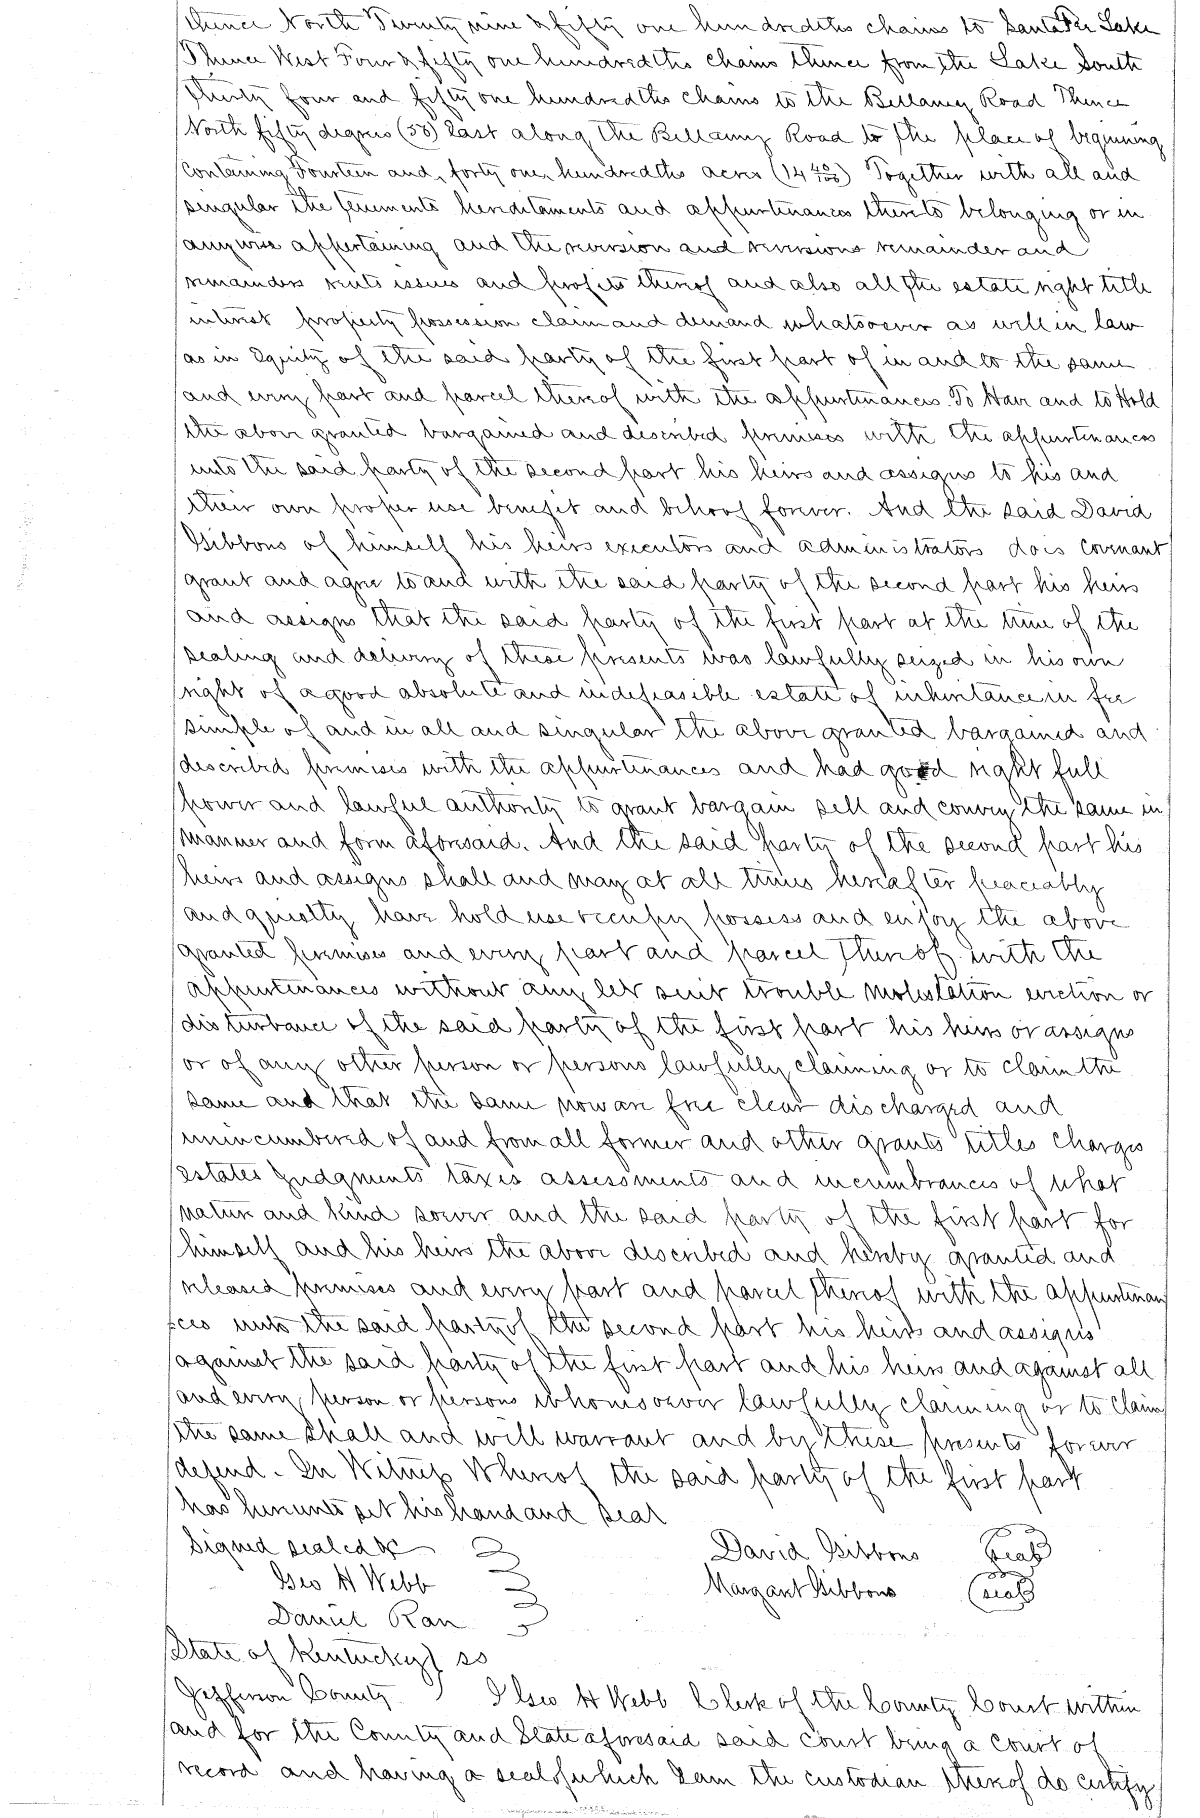 thence North Twenty nine & fifty one hundredths chains to Santa Fee Lake
Thence West Four & fifty one hundredths chains thence from the Lake South
thirty four and fifty one hundredths chains to the Bellamy Road Thence
North fifty degrees (50) East along the Bellamy Road to the place of beginning
Containing Fourteen and forty one hundredths acres (14 40/100) Together with all and
singular the tenements hereditaments and appurtenances thereto belonging or in
anywise appertaining and the reversion and reversions remainder and
remainders rents issues and profits thereof and also all the estate right title
interest property possession claim and demand whatsoever as well in law
as in Equity of the said party of the first part of in and to the same
and every part and parcel thereof with the appurtenances. To Have and to Hold
the above granted bargained and described premises with the appurtenances
unto the said party of the second part his heirs and assigns to his and
their own proper use benefit and behoof forever. And the said David
Gibbons of himself his heirs executors and administrators does covenant
grant and agree to and with the said party of the second part his heirs
and assigns that the said party of the first part at the time of the
sealing and delivery of these presents was lawfully seized in his own
right of a good absolute and indefeasible estate of inheritance in fee
simple of and in all and singular the above granted bargained and
described premises with the appurtenances and had good right full
power and lawful authority to grant bargain sell and convey the same in
manner and form aforesaid. And the said party of the second part his
heirs and assigns shall and may at all times hereafter peaceably
and quietly have hold use occupy possess and enjoy the above
granted premises and every part and parcel thereof with the
appurtenances without any let suit trouble molestation eviction or
disturbance of the said party of the first part his heirs or assigns
or of any other person or persons lawfully claiming or to claim the
same and that the same now are free clear discharged and
unincumbered of and from all former and other grants titles charges
estates judgments taxes assessments and incumbrances of what
nature and kind soever and the said party of the first part for
himself and his heirs the above described and hereby granted and
released premises and every part and parcel thereof with the appurtenan
ces unto the said party of the second part his heirs and assigns
against the said party of the first part and his heirs and against all
and every person or persons whomsoever lawfully claiming or to claim
the same shall and will warrant and by these presents forever
defend. In Witness Whereof the said party of the first part
has hereunto set his hand and seal
Signed sealed &c
David Gibbons (seal)
Geo H Webb
Margaret Gibbons (seal)
Daniel Ran
State of Kentucky } ss
Jefferson County } I Geo H Webb Clerk of the County Court within
and for the County and State aforesaid said court being a court of
record and having a seal of which I am the custodian thereof do certify